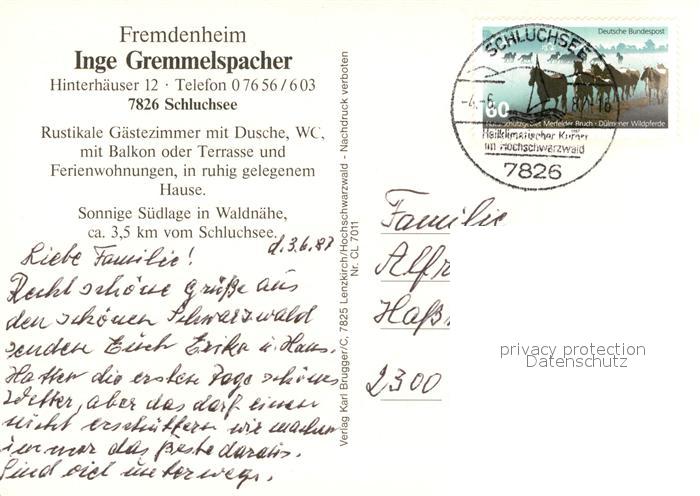 Fremdenheim
Inge Gremmelspacher
Hinterhäuser 12 · Telefon 0 76 56 / 6 03
7826 Schluchsee
Rustikale Gästezimmer mit Dusche, WC,
mit Balkon oder Terrasse und
Ferienwohnungen, in ruhig gelegenem
Hause.
Sonnige Südlage in Waldnähe,
ca. 3,5 km vom Schluchsee.
d. 3.6.87
Liebe Familie!
Recht schöne Grüße aus
den schönen Schwarzwald
senden Euch Erika u. Hans.
Hatten die ersten Tage schönes
Wetter, aber das darf einen
nicht erschüttern wir machen
immer das Beste daraus.
Sind viel unterwegs.
Verlag Karl Brugger/C, 7825 Lenzkirch/Hochschwarzwald - Nachdruck verboten
Nr. CL 7011
Deutsche Bundespost
60
Naturschutzgebiet Merfelder Bruch · Dülmener Wildpferde
SCHLUCHSEE
Heilklimatischer Kurort
im Hochschwarzwald
7826
Familie
Alfr
Haß
2300
privacy protection
Datenschutz